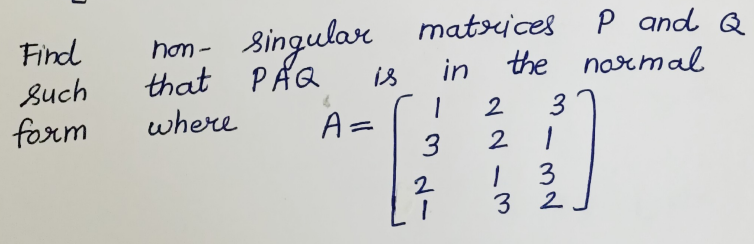 Find non-singular matrices P and Q
such that PAQ is in the normal
form where A = [ 1 2 3
3 2 1
2 1 3
1 3 2 ]